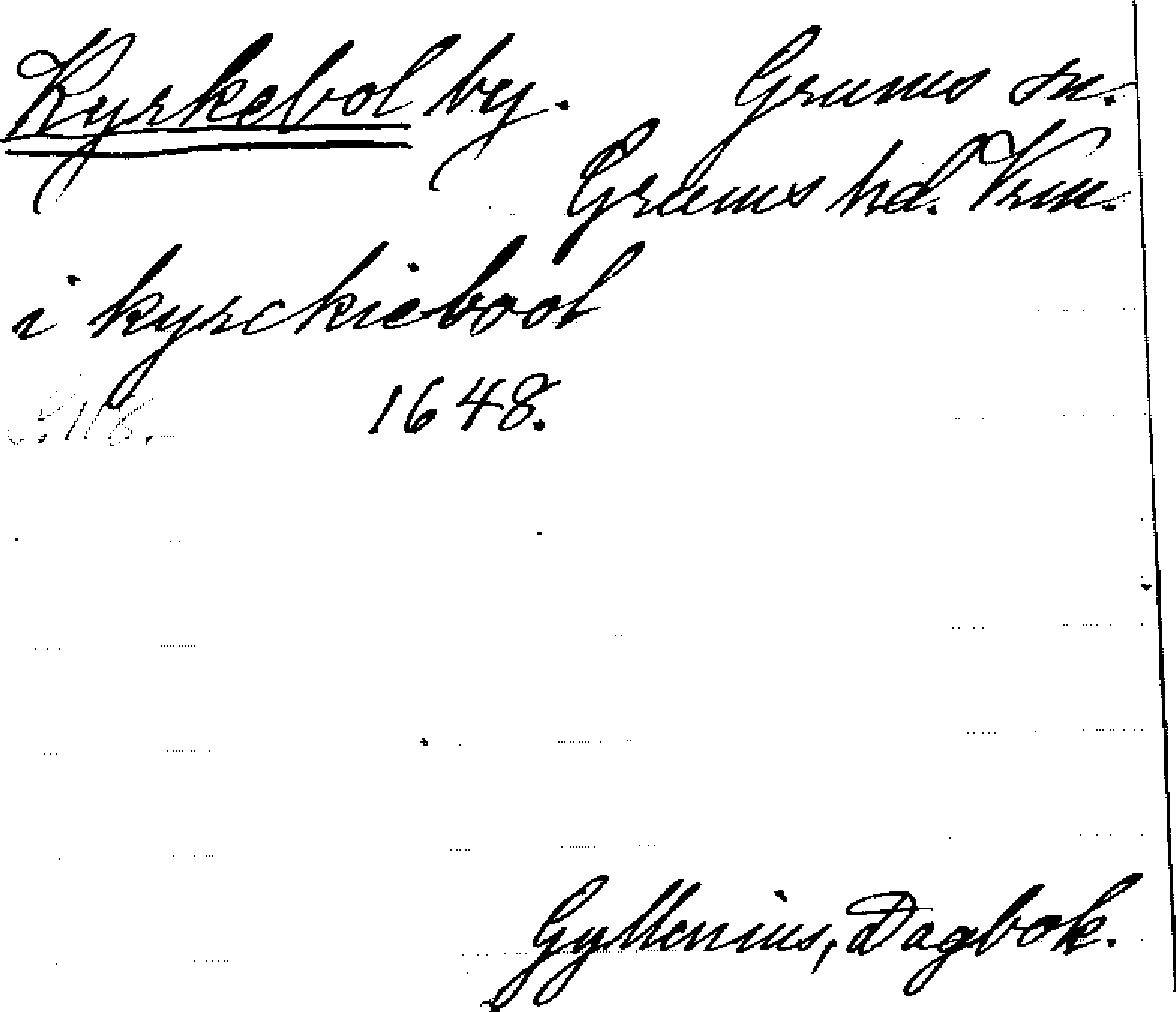 Kyrkebol by. Grums sn.
Grums hd. Vrm.
i kyrckiebool
S. 118. 1648.
Gyllenius, Dagbok.